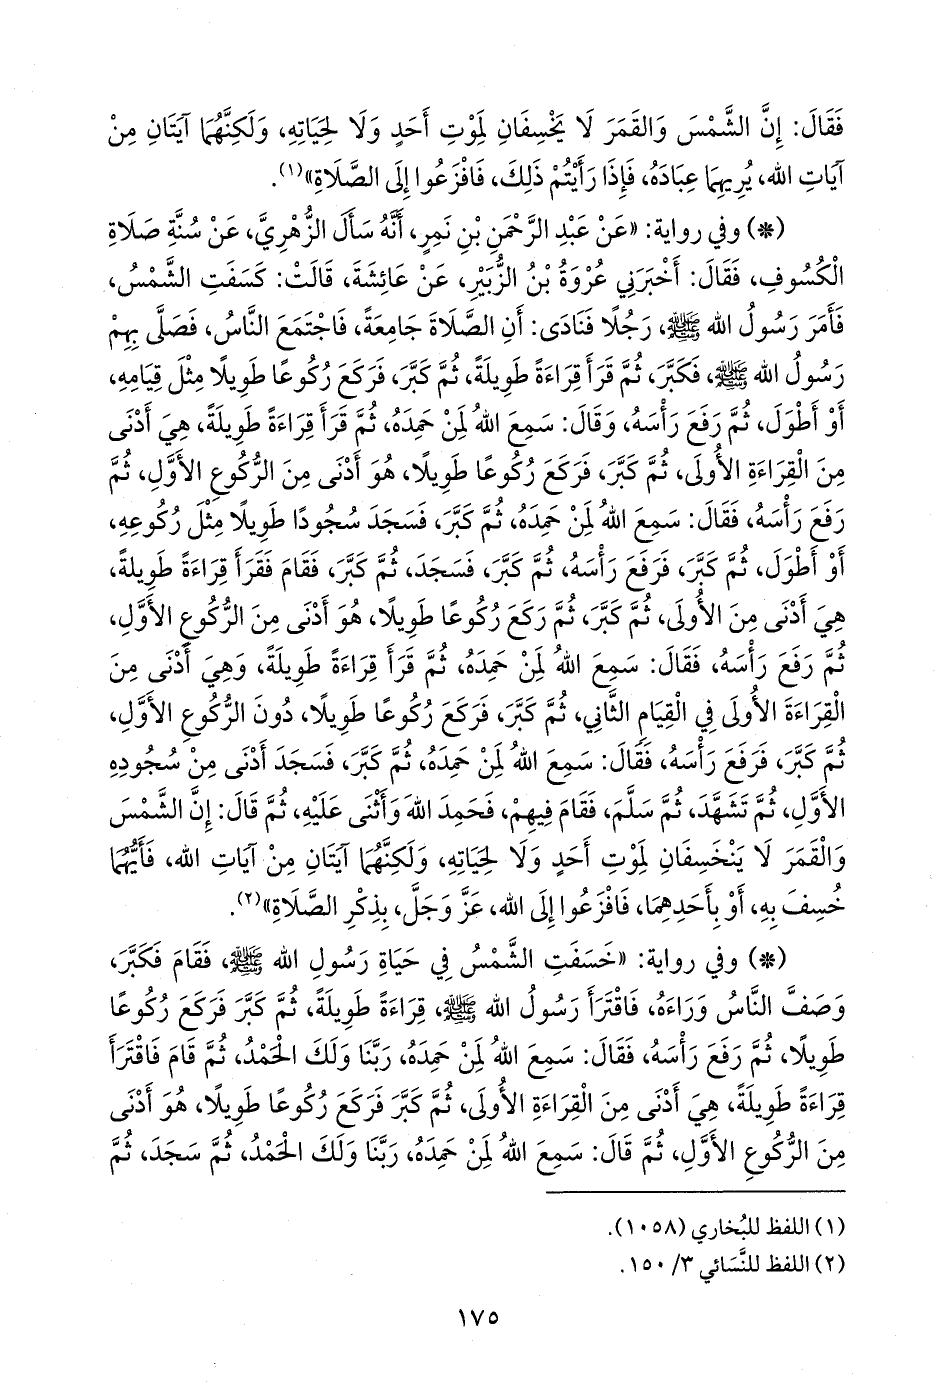 فَقَالَ: إِنَّ الشَّمْسَ وَالقَمَرَ لَا يَخْسِفَانِ لِمَوْتِ أَحَدٍ وَلَا لِحَيَاتِهِ، وَلَكِنَّهُمَا آيَتَانِ مِنْ
آيَاتِ الله، يُرِيهِمَا عِبَادَهُ، فَإِذَا رَأَيْتُمْ ذَلِكَ، فَافْزَعُوا إِلَى الصَّلَاةِ»(١).
(*) وفي رواية: «عَنْ عَبْدِ الرَّحْمَنِ بْنِ نَمِرٍ، أَنَّهُ سَأَلَ الزُّهْرِيَّ، عَنْ سُنَّةِ صَلَاةِ
الْكُسُوفِ، فَقَالَ: أَخْبَرَنِي عُرْوَةُ بْنُ الزُّبَيْرِ، عَنْ عَائِشَةَ، قَالَتْ: كَسَفَتِ الشَّمْسُ،
فَأَمَرَ رَسُولُ الله ﷺ، رَجُلًا فَنَادَى: أَنِ الصَّلَاةَ جَامِعَةً، فَاجْتَمَعَ النَّاسُ، فَصَلَّى بِهِمْ
رَسُولُ الله ﷺ، فَكَبَّرَ، ثُمَّ قَرَأَ قِرَاءَةً طَوِيلَةً، ثُمَّ كَبَّرَ، فَرَكَعَ رُكُوعًا طَوِيلًا مِثْلَ قِيَامِهِ،
أَوْ أَطْوَلَ، ثُمَّ رَفَعَ رَأْسَهُ، وَقَالَ: سَمِعَ اللهُ لِمَنْ حَمِدَهُ، ثُمَّ قَرَأَ قِرَاءَةً طَوِيلَةً، هِيَ أَدْنَى
مِنَ الْقِرَاءَةِ الأُولَى، ثُمَّ كَبَّرَ، فَرَكَعَ رُكُوعًا طَوِيلًا، هُوَ أَدْنَى مِنَ الرُّكُوعِ الأَوَّلِ، ثُمَّ
رَفَعَ رَأْسَهُ، فَقَالَ: سَمِعَ اللهُ لِمَنْ حَمِدَهُ، ثُمَّ كَبَّرَ، فَسَجَدَ سُجُودًا طَوِيلًا مِثْلَ رُكُوعِهِ،
أَوْ أَطْوَلَ، ثُمَّ كَبَّرَ، فَرَفَعَ رَأْسَهُ، ثُمَّ كَبَّرَ، فَسَجَدَ، ثُمَّ كَبَّرَ، فَقَامَ فَقَرَأَ قِرَاءَةً طَوِيلَةً،
هِيَ أَدْنَى مِنَ الأُولَى، ثُمَّ كَبَّرَ، ثُمَّ رَكَعَ رُكُوعًا طَوِيلًا، هُوَ أَدْنَى مِنَ الرُّكُوعِ الأَوَّلِ،
ثُمَّ رَفَعَ رَأْسَهُ، فَقَالَ: سَمِعَ اللهُ لِمَنْ حَمِدَهُ، ثُمَّ قَرَأَ قِرَاءَةً طَوِيلَةً، وَهِيَ أَدْنَى مِنَ
الْقِرَاءَةِ الأُولَى فِي الْقِيَامِ الثَّانِي، ثُمَّ كَبَّرَ، فَرَكَعَ رُكُوعًا طَوِيلًا، دُونَ الرُّكُوعِ الأَوَّلِ،
ثُمَّ كَبَّرَ، فَرَفَعَ رَأْسَهُ، فَقَالَ: سَمِعَ اللهُ لِمَنْ حَمِدَهُ، ثُمَّ كَبَّرَ، فَسَجَدَ أَدْنَى مِنْ سُجُودِهِ
الأَوَّلِ، ثُمَّ تَشَهَّدَ، ثُمَّ سَلَّمَ، فَقَامَ فِيهِمْ، فَحَمِدَ اللهَ وَأَثْنَى عَلَيْهِ، ثُمَّ قَالَ: إِنَّ الشَّمْسَ
وَالْقَمَرَ لَا يَنْخَسِفَانِ لِمَوْتِ أَحَدٍ وَلَا لِحَيَاتِهِ، وَلَكِنَّهُمَا آيَتَانِ مِنْ آيَاتِ الله، فَأَيُّهُمَا
خُسِفَ بِهِ، أَوْ بِأَحَدِهِمَا، فَافْزَعُوا إِلَى الله، عَزَّ وَجَلَّ، بِذِكْرِ الصَّلَاةِ»(٢).
(*) وفي رواية: «خَسَفَتِ الشَّمْسُ فِي حَيَاةِ رَسُولِ الله ﷺ، فَقَامَ فَكَبَّرَ،
وَصَفَّ النَّاسُ وَرَاءَهُ، فَاقْتَرَأَ رَسُولُ الله ﷺ، قِرَاءَةً طَوِيلَةً، ثُمَّ كَبَّرَ فَرَكَعَ رُكُوعًا
طَوِيلًا، ثُمَّ رَفَعَ رَأْسَهُ، فَقَالَ: سَمِعَ اللهُ لِمَنْ حَمِدَهُ، رَبَّنَا وَلَكَ الْحَمْدُ، ثُمَّ قَامَ فَاقْتَرَأَ
قِرَاءَةً طَوِيلَةً، هِيَ أَدْنَى مِنَ الْقِرَاءَةِ الأُولَى، ثُمَّ كَبَّرَ فَرَكَعَ رُكُوعًا طَوِيلًا، هُوَ أَدْنَى
مِنَ الرُّكُوعِ الأَوَّلِ، ثُمَّ قَالَ: سَمِعَ اللهُ لِمَنْ حَمِدَهُ، رَبَّنَا وَلَكَ الْحَمْدُ، ثُمَّ سَجَدَ، ثُمَّ
(١) اللفظ للبُخاري (١٠٥٨).
(٢) اللفظ للنَّسَائي ٣/ ١٥٠.
١٧٥